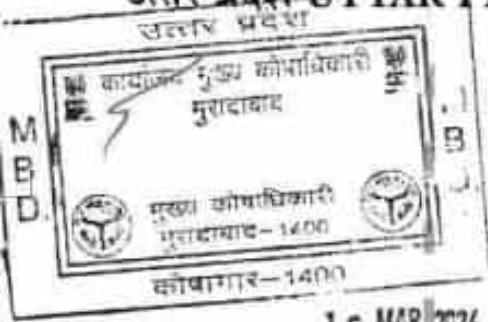 उत्तर प्रदेश
कार्यालय मुख्य कोषाधिकारी
मुरादाबाद
M
B
D
B
मुख्य कोषाधिकारी
मुरादाबाद-1400
कोषागार-1400
MAR 2024